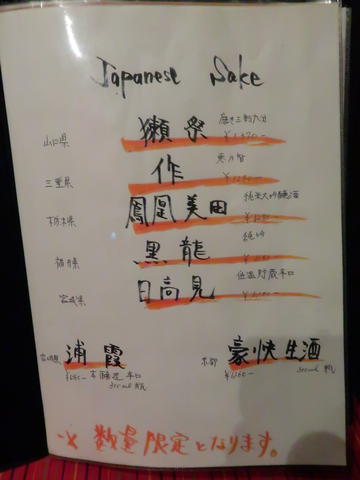 Japanese Sake
獺祭 磨き三割九分
山口県
作 恵乃智
三重県
鳳凰美田 純米大吟醸酒
栃木県
黒龍 純吟
福井県
日高見 低温貯蔵辛口
宮城県
宮城県 浦霞
本醸造 辛口
300ml 瓶
京都 豪快生酒
300ml 瓶
※ 数量限定となります。